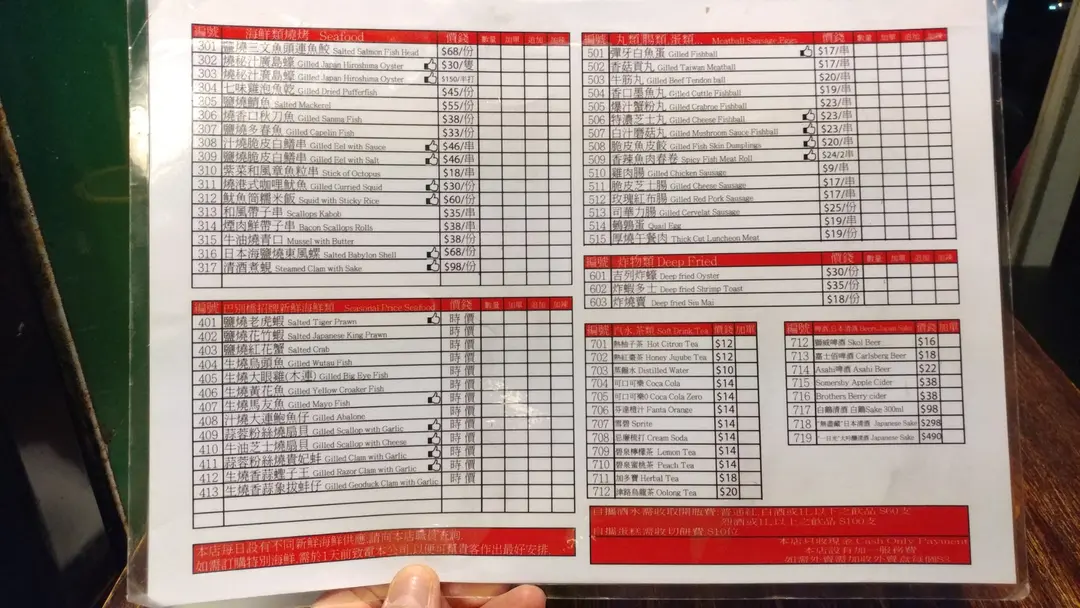 編號 海鮮類燒烤 Seafood 價錢 數量 加單 追加 加辣
301 鹽燒三文魚頭連魚鮫 Salted Salmon Fish Head $68/份
302 燒秘汁廣島蠔 Gilled Japan Hiroshima Oyster $30/隻
303 燒秘汁廣島蠔 Gilled Japan Hiroshima Oyster $150/半打
304 七味雞泡魚乾 Gilled Dried Pufferfish $45/份
305 鹽燒鯖魚 Salted Mackerel $55/份
306 燒香口秋刀魚 Gilled Sanma Fish $38/份
307 鹽燒多春魚 Gilled Capelin Fish $33/份
308 汁燒脆皮白鱔串 Gilled Eel with Sauce $46/串
309 鹽燒脆皮白鱔串 Gilled Eel with Salt $46/串
310 紫菜和風章魚粒串 Stick of Octopus $18/串
311 燒港式咖喱魷魚 Gilled Curried Squid $30/份
312 魷魚筒糯米飯 Squid with Sticky Rice $60/份
313 和風帶子串 Scallops Kabob $35/串
314 煙肉鮮帶子串 Bacon Scallops Rolls $38/串
315 牛油燒青口 Mussel with Butter $38/份
316 日本海鹽燒東風螺 Salted Babylon Shell $68/份
317 清酒煮蜆 Steamed Clam with Sake $98/份
編號 巴別橋招牌新鮮海鮮類 Seasonal Price Seafood 價錢 數量 加單 追加 加辣
401 鹽燒老虎蝦 Salted Tiger Prawn 時價
402 鹽燒花竹蝦 Salted Japanese King Prawn 時價
403 鹽燒紅花蟹 Salted Crab 時價
404 生燒烏頭魚 Gilled Wutau Fish 時價
405 生燒大眼雞(木連) Gilled Big Eye Fish 時價
406 生燒黃花魚 Gilled Yellow Croaker Fish 時價
407 生燒馬友魚 Gilled Mayo Fish 時價
408 汁燒大連鮑魚仔 Gilled Abalone 時價
409 蒜蓉粉絲燒扇貝 Gilled Scallop with Garlic 時價
410 牛油芝士燒扇貝 Gilled Scallop with Cheese 時價
411 蒜蓉粉絲燒貴妃蚌 Gilled Clam with Garlic 時價
412 生燒香蒜蟶子王 Gilled Razor Clam with Garlic 時價
413 生燒香蒜象拔蚌仔 Gilled Geoduck Clam with Garlic 時價
本店每日設有不同新鮮海鮮供應,請向本店職員查詢.
如需訂購特別海鮮,需於1天前致電本公司,以便可積貴客作出最好安排.
編號 丸類,腸類,蛋類.. Meatball Sausage Eggs 價錢 數量 加單 追加 加辣
501 彈牙白魚蛋 Gilled Fishball $17/串
502 香菇貢丸 Gilled Taiwan Meatball $17/串
503 牛筋丸 Gilled Beef Tendon ball $20/串
504 香口墨魚丸 Gilled Cuttle Fishball $19/串
505 爆汁蟹粉丸 Gilled Crabroe Fishball $23/串
506 特濃芝士丸 Gilled Cheese Fishball $23/串
507 白汁磨菇丸 Gilled Mushroom Sauce Fishball $23/串
508 脆皮魚皮餃 Gilled Fish Skin Dumplings $20/串
509 香辣魚肉春卷 Spicy Fish Meat Roll $24/2串
510 雞肉腸 Gilled Chicken Sausage $9/串
511 脆皮芝士腸 Gilled Cheese Sausage $17/串
512 玫瑰紅布腸 Gilled Red Pork Sausage $17/串
513 司華力腸 Gilled Cervelat Sausage $25/份
514 鵪鶉蛋 Quail Egg $19/串
515 厚燒午餐肉 Thick Cut Luncheon Meat $19/份
編號 炸物類 Deep Fried 價錢 數量 加單 追加 加辣
601 吉列炸蠔 Deep fried Oyster $30/份
602 炸蝦多士 Deep fried Shrimp Toast $35/份
603 炸燒賣 Deep fried Seu Mai $18/份
編號 汽水,茶類 Soft Drink Tea 價錢 加單
701 熱柚子茶 Hot Citron Tea $12
702 熱紅棗茶 Honey Jujube Tea $12
703 蒸餾水 Distilled Water $10
704 可口可樂 Coca Cola $14
705 可口可樂0 Coca Cola Zero $14
706 芬達橙汁 Fanta Orange $14
707 雪碧 Sprite $14
708 忌廉梳打 Cream Soda $14
709 碧泉檸檬茶 Lemon Tea $14
710 碧泉蜜桃茶 Peach Tea $14
711 加多寶 Herbal Tea $18
712 津路烏龍茶 Oolong Tea $20
編號 啤酒,日本清酒 Beers,Japan Sake 價錢 加單
712 獅威啤酒 Skol Beer $16
713 嘉士伯啤酒 Carlsberg Beer $18
714 Asahi啤酒 Asahi Beer $22
715 Somersby Apple Cider $38
716 Brothers Berry cider $38
717 白鶴清酒 白鶴Sake 300ml $98
718 "無盡藏"日本清酒 Japanese Sake $298
719 "一日光"大吟釀清酒 Japanese Sake $490
自攜酒水需收取開瓶費:普通紅,白酒或1L以下之飲品 $60支
烈酒或1L以上之飲品 $100支
自攜蛋糕需收切餅費 $10位
本店只收現金 Cash Only Payment
本店設有加一服務費
如需外賣需加收外賣盒每個$3